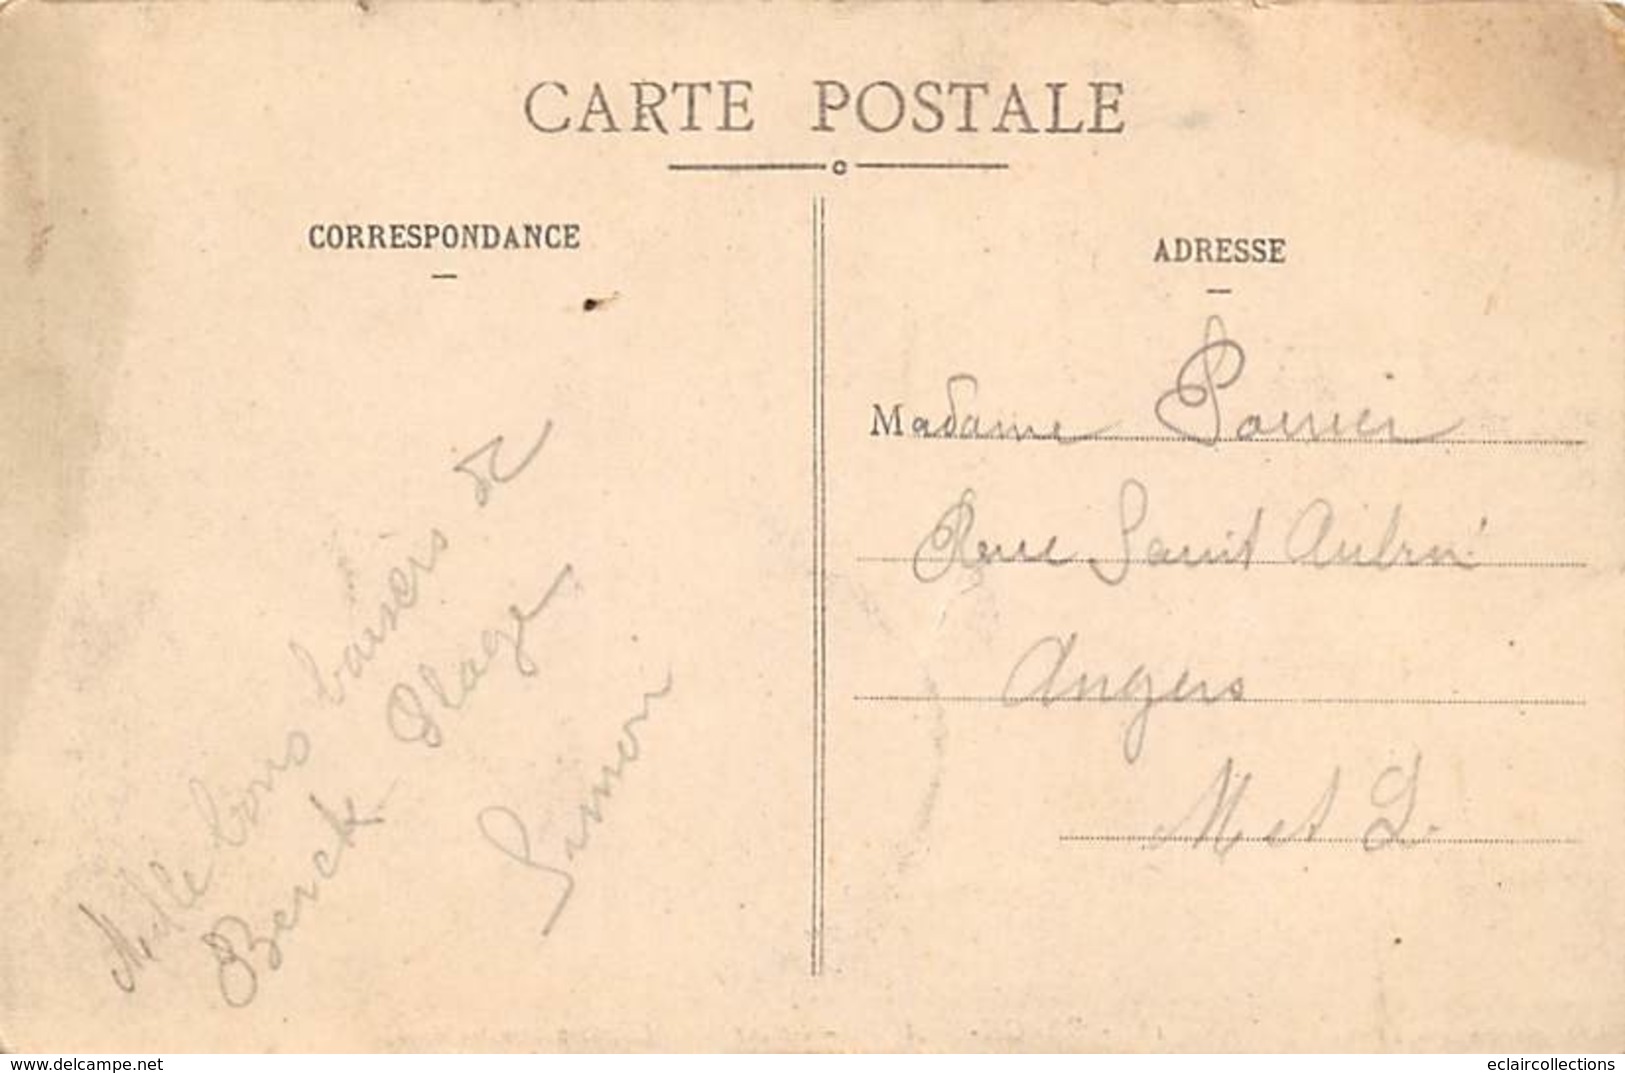 CARTE POSTALE
CORRESPONDANCE
ADRESSE
Mille bons baisers de
Berck Plage
Simon
Madame Poirier
Rue Saint Aubin
Angers
M et L.
www.delcampe.net
eclaircollections